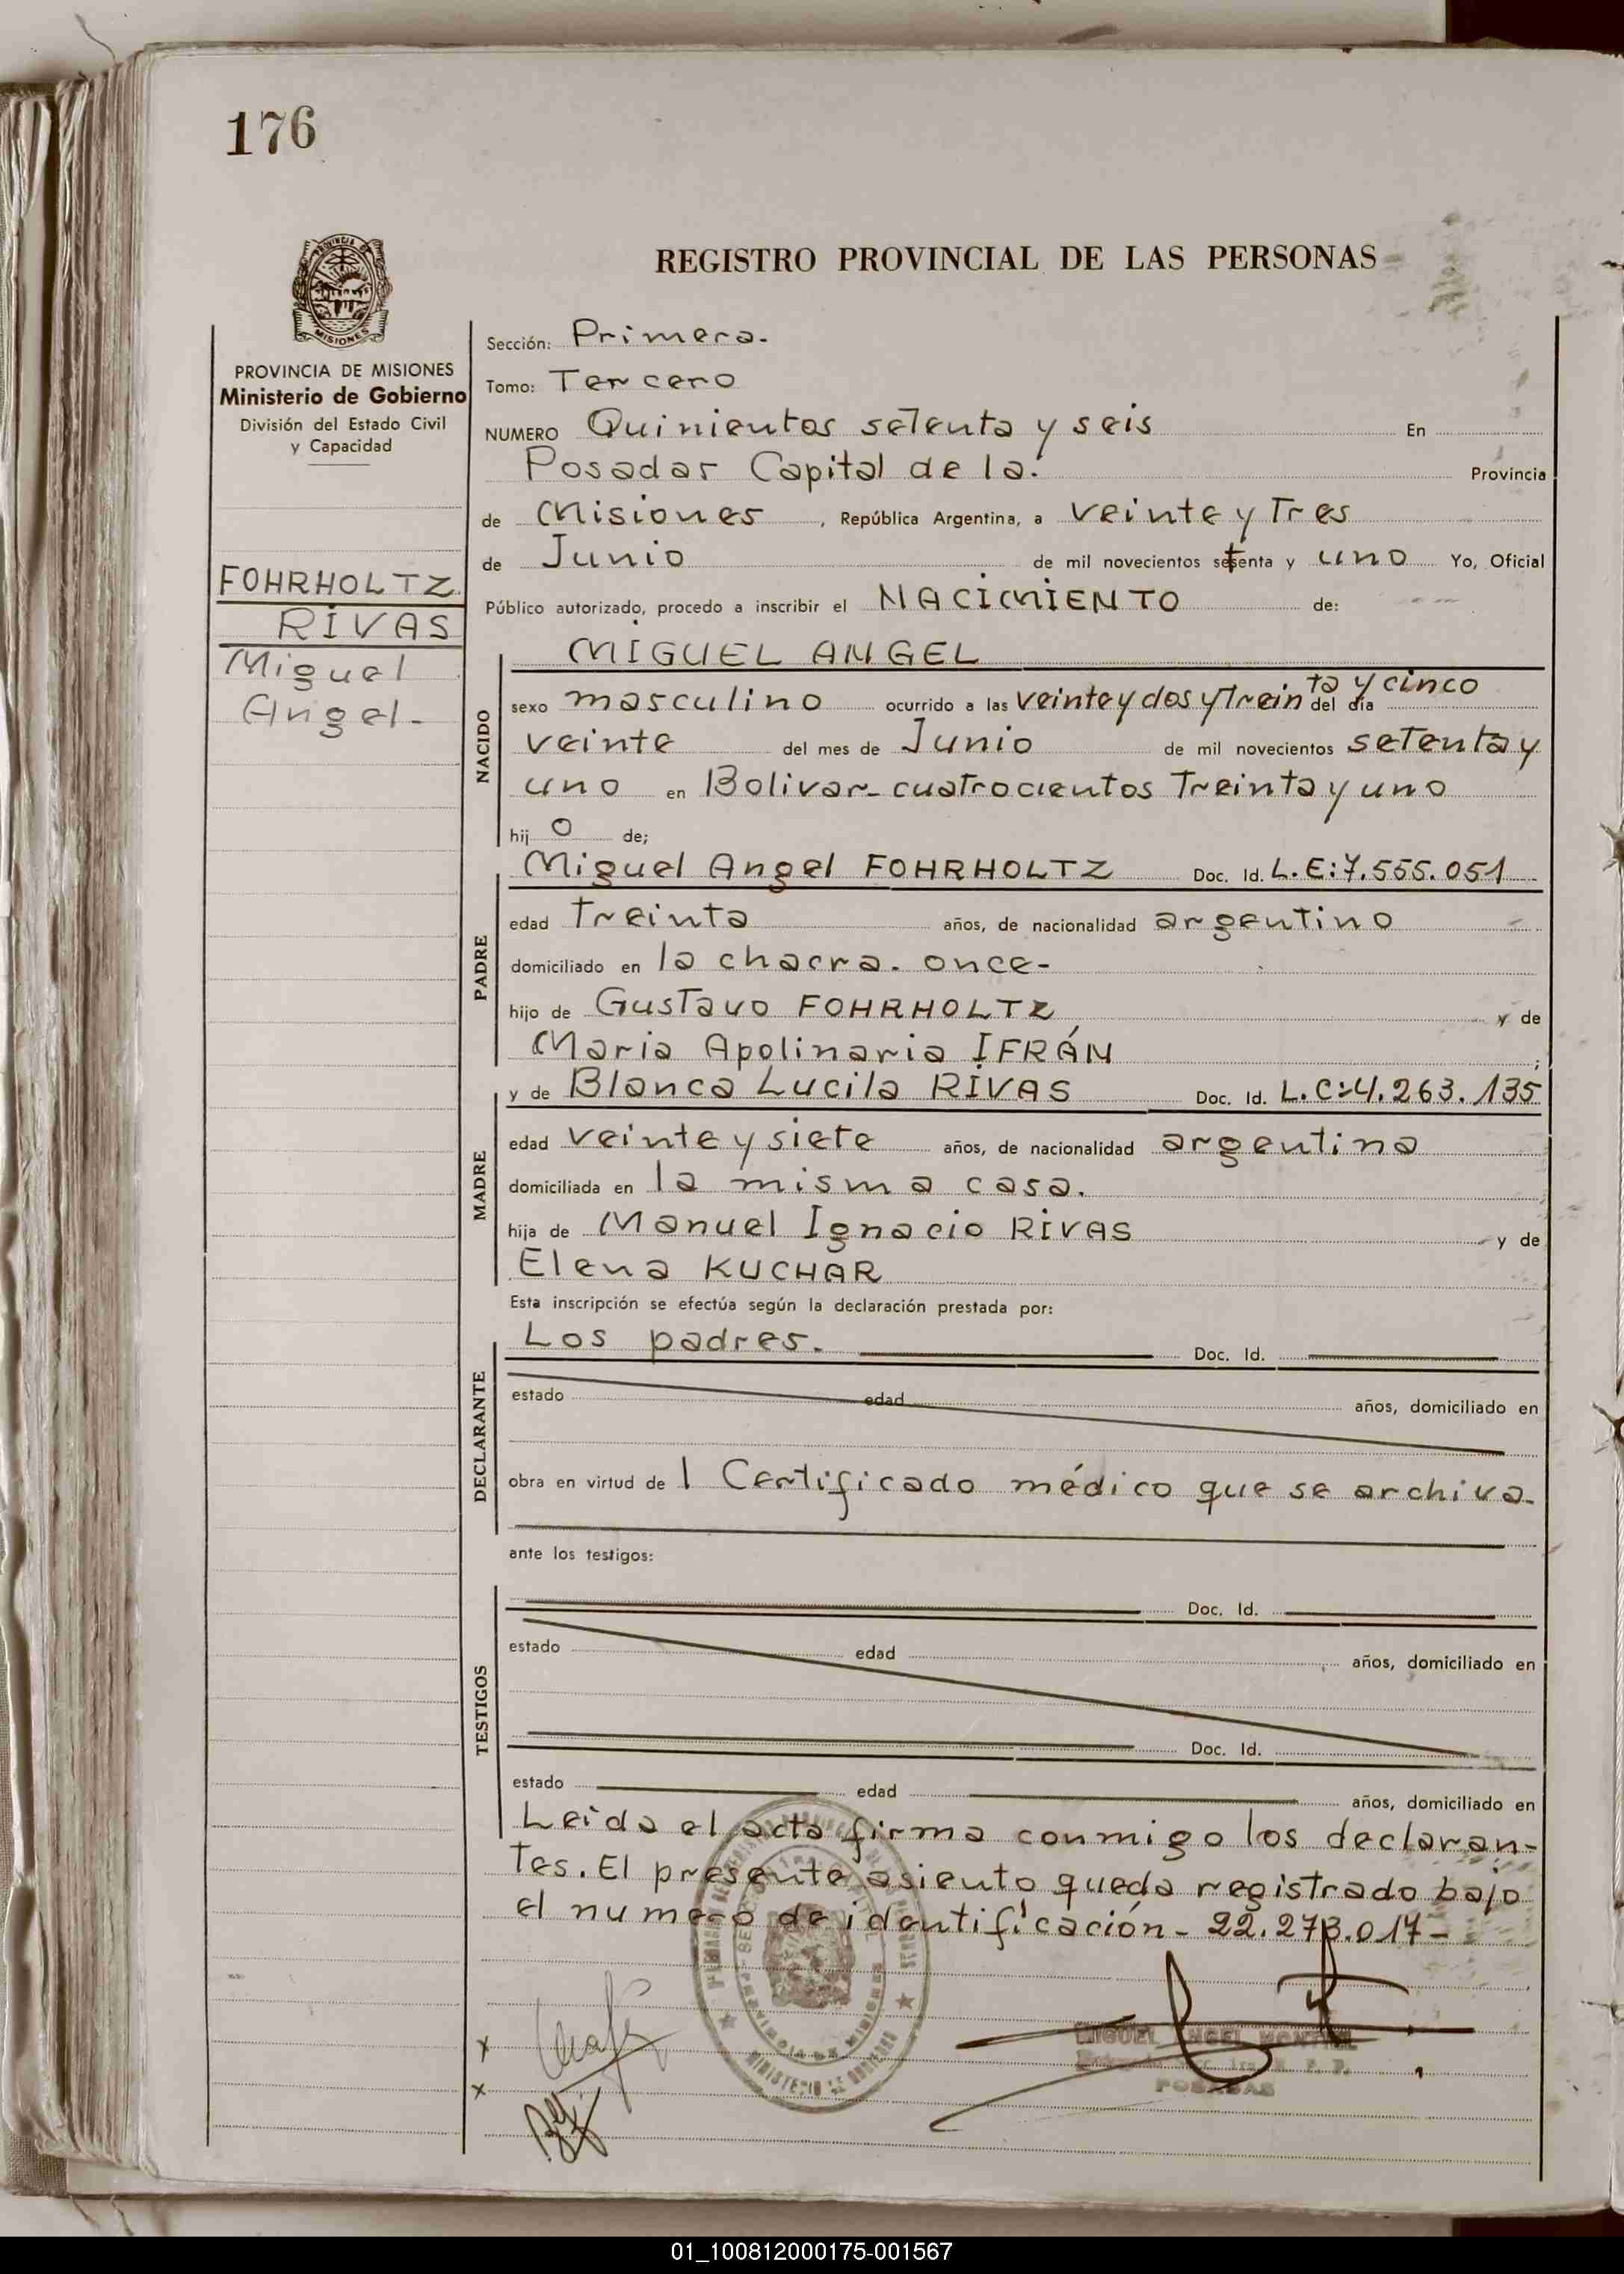 176
REGISTRO PROVINCIAL DE LAS PERSONAS
PROVINCIA DE MISIONES
Ministerio de Gobierno
División del Estado Civil
y Capacidad
FOHRHOLTZ
RIVAS
Miguel
Angel-
Sección: Primera.
Tomo: Tercero
NUMERO Quinientos setenta y seis En
Posadas Capital de la. Provincia
de Misiones, República Argentina, a veinte y Tres
de Junio de mil novecientos setenta y uno Yo, Oficial
Público autorizado, procedo a inscribir el NACIMIENTO de:
NACIDO
MIGUEL ANGEL
sexo masculino ocurrido a las veinte y dos y treinta y cinco del día
veinte del mes de Junio de mil novecientos setenta y
uno en Bolivar-cuatrocientos Treinta y uno
hij o de;
PADRE
Miguel Angel FOHRHOLTZ Doc. Id. L.E:7.555.051
edad Treinta años, de nacionalidad argentino
domiciliado en la chacra. once-
hijo de Gustavo FOHRHOLTZ y de
Maria Apolinaria IFRÁN;
MADRE
y de Blanca Lucila RIVAS Doc. Id. L.C:4.263.135
edad veinte y siete años, de nacionalidad argentina
domiciliada en la misma casa.
hija de Manuel Ignacio RIVAS y de
Elena KUCHAR
Esta inscripción se efectúa según la declaración prestada por:
DECLARANTE
Los padres. Doc. Id.
estado edad años, domiciliado en
obra en virtud de 1 Certificado médico que se archiva-
ante los testigos:
TESTIGOS
Doc. Id.
estado edad años, domiciliado en
Doc. Id.
estado edad años, domiciliado en
Leida el acta firma conmigo los declaran-
tes. El presente asiento queda registrado bajo
el numero de identificación- 22.273.017-
MINISTERIO DE GOBIERNO
PROVINCIA DE MISIONES
MIGUEL ANGEL MONTIEL
POSADAS
01_100812000175-001567